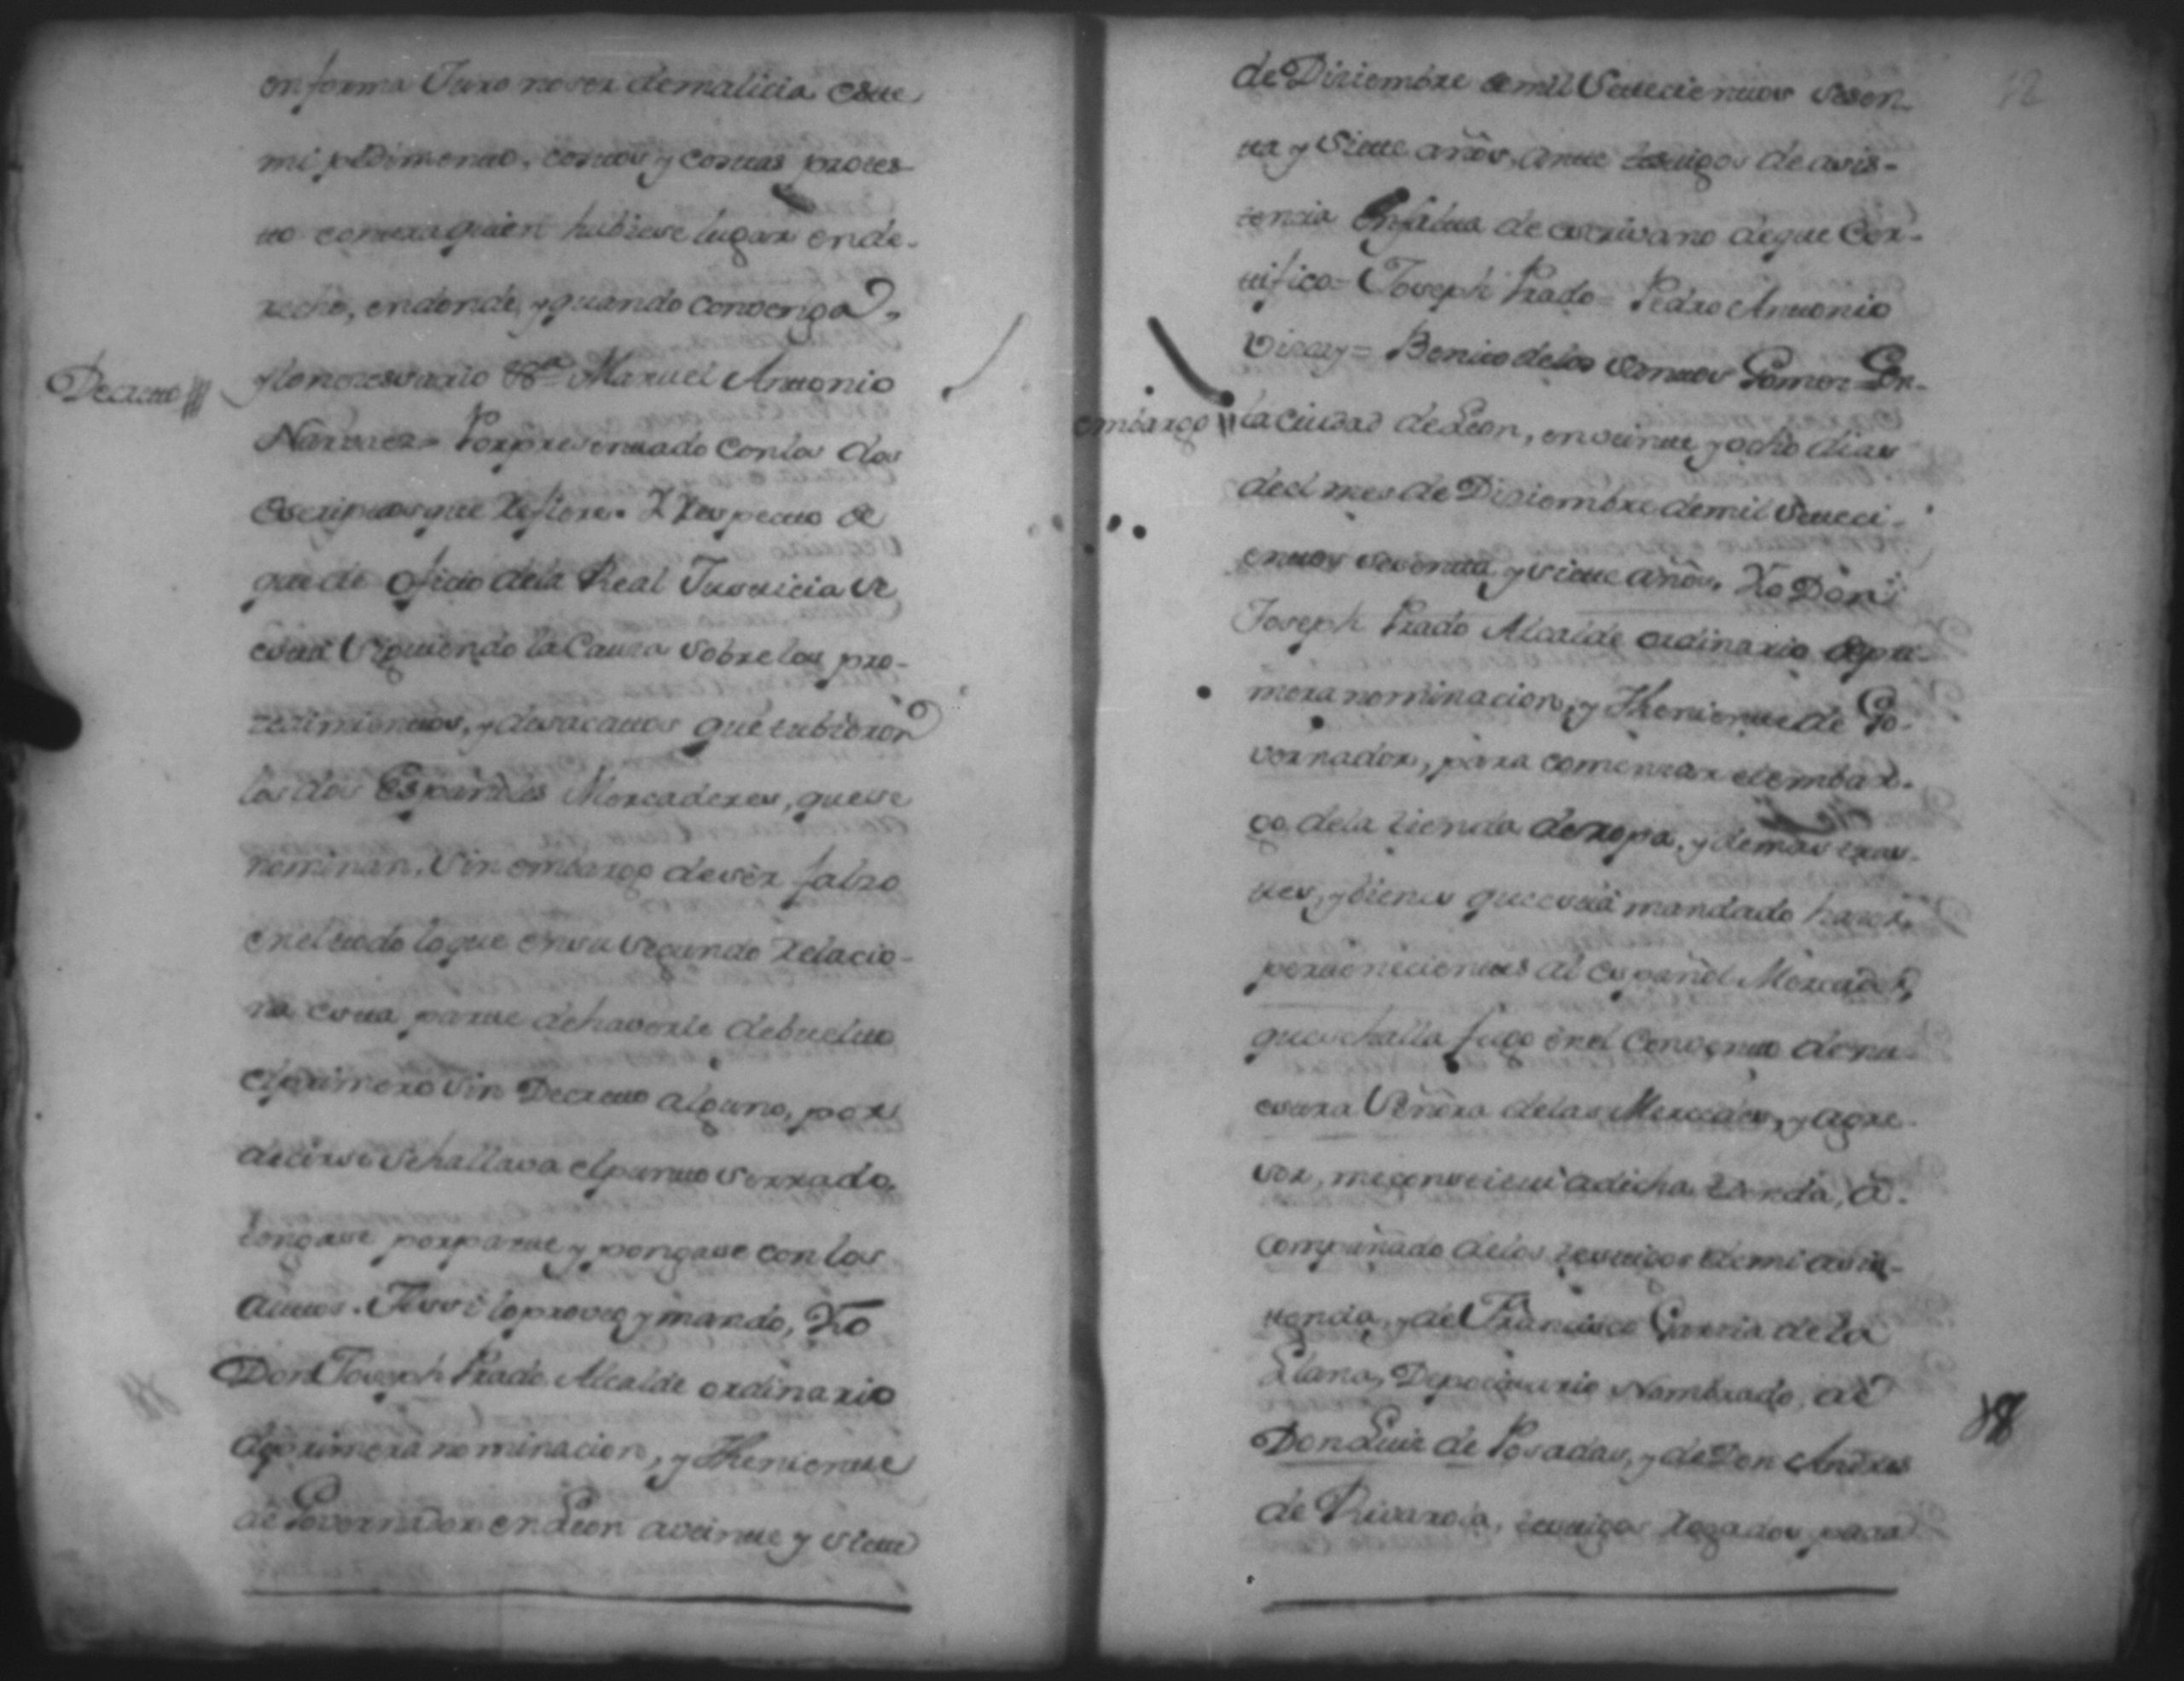 en forma Juro no ser de malicia este
mi pedimento, costos y costas protes-
to contra quien hubiese lugar en de-
recho, en donde, y quando convenga,
Decreto
y lo necesario Vª Manuel Antonio
Narvaez= Por presentado con los dos
escriptos que refiere. Y respecto de
que de oficio de la Real Justicia se
está siguiendo la Causa sobre los pro-
cedimientos, y desacatos que tubieron
los dos Españoles Mercaderes, que se
nominan. Sin embargo de ser falso
en el todo lo que en su segundo relacio-
na esta parte de haverle debuelto
el primero sin Decreto alguno, por
decirse se hallava el punto serrado,
tengase por parte y pongase con los
autos. Assi lo proveo y mando, Yo
Don Joseph Prado Alcalde ordinario
de primera nominacion, y Theniente
de Governador en Leon a veinte y siete
12
de Diciembre de mil Setecientos sesen-
ta y Siete años, ante testigos de asis-
tencia en falta de escrivano de que Cer-
tifico= Joseph Prado= Pedro Antonio
Viscay= Benito de los Santos Gomez= En
embargo
la Ciudad de Leon, en veinte y ocho dias
del mes de Diciembre de mil Seteci-
entos sesenta y siete años. Yo Don
Joseph Prado Alcalde ordinario de pri-
mera nominacion, y Theniente de Go-
vernador, para comenzar el embar-
go de la tienda de ropa, y demas tras-
tes, y bienes que está mandado hacer,
pertenecientes al español Mercader,
que se halla fugo en el Convento de nu-
estra Señora de las Mercedes, y agre-
sor, me constitui a dicha tienda, a-
compañado de los testigos de mi asis-
tencia, y de Francisco Garcia de la
Llana, Depocitario Nombrado, de
Don Luis de Posadas, y de Don Andres
de Rivarola, testigos rogados para
18